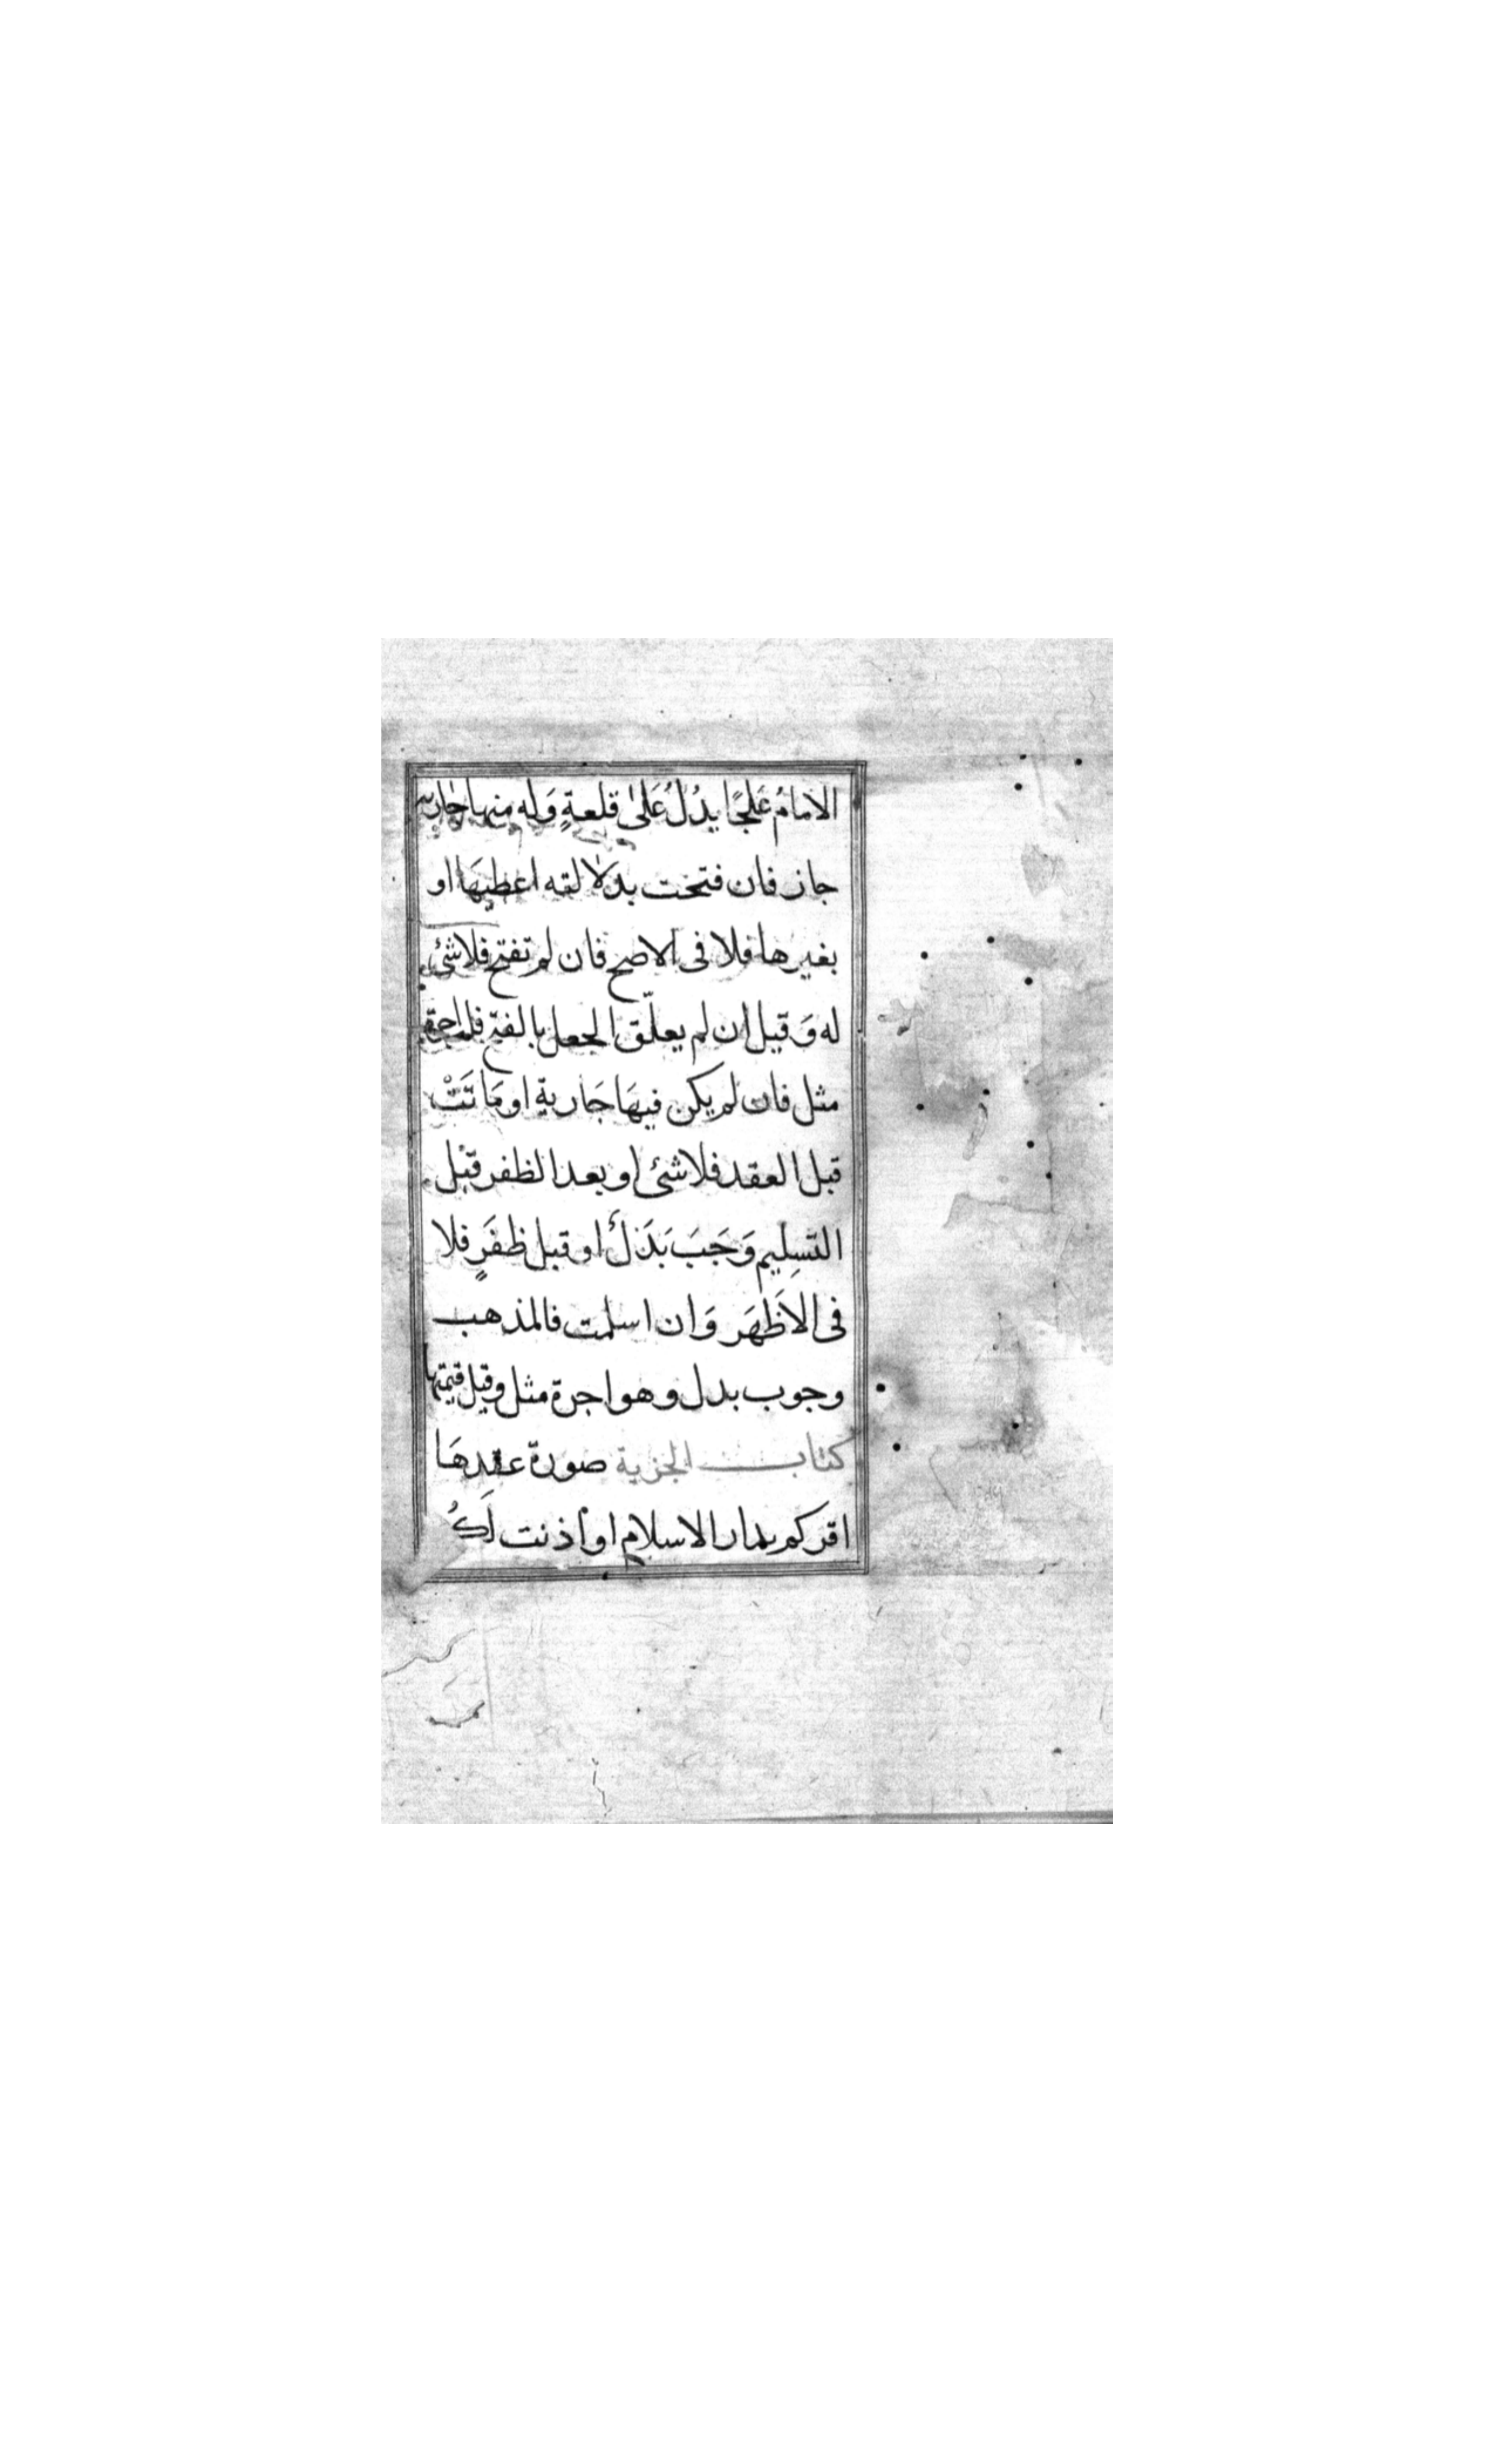 الامامُ عَلجًا يدُلُ عَلىٰ قلعةٍ وَله منها جارية
جاز فان فتحت بدلالته اعطيهَا او
بغيرها فلا فى الاصح فان لم تفتح فلا شئ
له وَقيل ان لم يعلّق الجعل بالفتح فله اجرة
مثل فان لم يكن فيهَا جَارية او مَاتَتْ
قبل العقد فلا شئ او بعد الظفر قبْل
التسلِيم وَجَبَ بَدَلٌ او قبل ظفَرٍ فلا
فى الاَظهَر وَان اسلمت فالمذهب
وجوب بدل وهو اجرة مثل وقيل قيمتها
كتاب الجزية صورة عقدهَا
اقركم بدار الاسلام او أذنت لَكُ